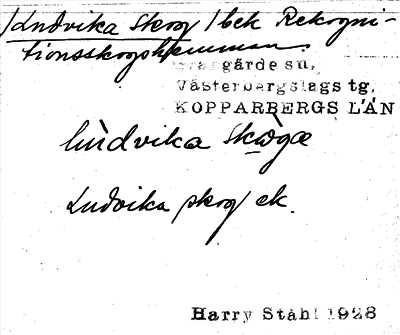 /Ludvika Skog/ bek Rekogni-
tionsskogshemman
gärde sn,
Västerbergslags tg.
KOPPARBERGS LÄN
lùdvika Skọ̀gæ
Ludvika skog/ ek.
Harry Ståhl 1928